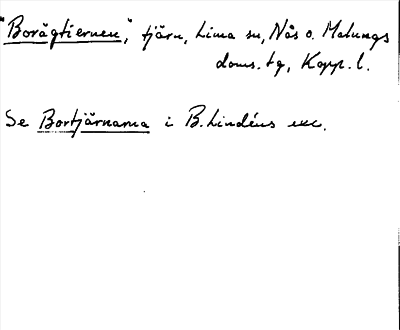 "Borägtiernen", tjärn, Lima sn, Nås o. Malungs
doms. tg, Kopp. l.
Se Bortjärnarna i B. Lindéns exc.